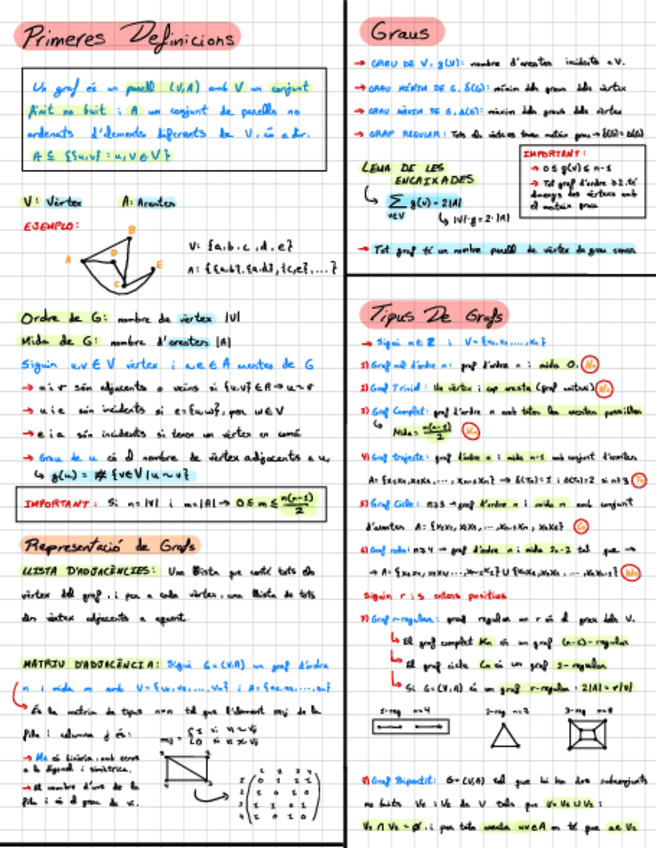 Primeres Definicions
Un graf és un parell (V,A) amb V un conjunt
finit no buit i A un conjunt de parells no
ordenats d'elements diferents de V, és a dir,
A ⊆ {{u,v} : u,v ∈ V}
V: Vèrtex A: Arestes
EJEMPLO:
B
D
A
E
C
V: {a,b,c,d,e}
A: {{a,b},{a,d},{c,e},...}
Ordre de G: nombre de vèrtex |V|
Mida de G: nombre d'arestes |A|
Siguin u,v ∈ V vèrtex i a,e ∈ A arestes de G
→ u i v són adjacents o veïns si {u,v} ∈ A → u ~ v
→ u i e són incidents si e={u,w}, per w ∈ V
→ e i a són incidents si tenen un vèrtex en comú
→ Grau de u és el nombre de vèrtex adjacents a u,
g(u) = #{v ∈ V | u ~ v}
IMPORTANT: Si n=|V| i m=|A| → 0 ≤ m ≤ n(n-1)/2
Representació de Grafs
LLISTA D'ADJACÈNCIES: Una llista que conté tots els
vèrtex del graf, i per a cada vèrtex, una llista de tots
els vèrtex adjacents a aquest.
MATRIU D'ADJACÈNCIA: Sigui G=(V,A) un graf d'ordre
n i mida m amb
És la matriu de tipus n×n tal que l'element mij de la
fila i columna j és:
mij = {1 si vi ~ vj
0 si vi ≁ vj
→ Ma és binària, amb zeros
a la diagonal i simètrica.
→ El nombre d'uns de la
fila i és el grau de vi.
Graus
→ GRAU DE V, g(V): nombre d'arestes incidents a V.
→ GRAU MÍNIM DE G, δ(G): mínim dels graus dels vèrtex
→ GRAU MÀXIM DE G, Δ(G): màxim dels graus dels vèrtex
→ GRAF REGULAR: Tots els vèrtexs tenen mateix grau → δ(G)=Δ(G)
LEMA DE LES
ENCAIXADES
∑ g(v) = 2|A|
v∈V
|V|·g = 2·|A|
IMPORTANT:
→ 0 ≤ g(v) ≤ n-1
→ Tot graf d'ordre ≥2, té
almenys dos vèrtexs amb
el mateix grau
→ Tot graf té un nombre parell de vèrtex de grau senar
Tipus De Grafs
→ Sigui n ∈ Z i V={x1,x2,...,xn}
1) Graf nul d'ordre n: graf d'ordre n i mida 0. Nn
2) Graf Trivial: Un vèrtex i cap aresta (graf unitari) N1
3) Graf Complet: graf d'ordre n amb totes les arestes possibles
Mida = n(n-1)/2 Kn
4) Graf trajecte: graf d'ordre n i mida n-1 amb conjunt d'arestes
A={x1x2,x2x3,...,xn-1xn} → δ(Tn)=1 i Δ(Tn)=2 si n≥3 Tn
5) Graf Cicle: n≥3 → graf d'ordre n i mida n amb conjunt
d'arestes A={x1x2,x2x3,...,xn-1xn,xnx1} Cn
6) Graf roda: n≥4 → graf d'ordre n i mida 2n-2 tal que →
Wn
Siguin r i s enters positius
7) Graf r-regular: graf regular on r és el grau dels V.
El graf complet Kn és un graf (n-1)-regular
El graf cicle Cn és un graf 2-regular
Si G=(V,A) és un graf r-regular: 2|A|=r|V|
1-reg n=4
2-reg n=3
3-reg n=8
8) Graf Bipartit: G=(V,A) tal que hi ha dos subconjunts
no buits V1 i V2 de V tals que V=V1∪V2 i
V1∩V2=Ø, i per tota aresta uv∈A es té que u∈V1